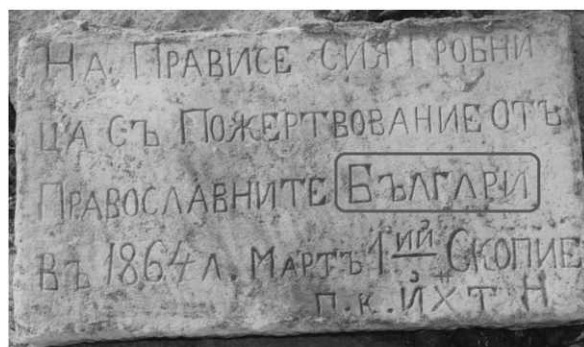 НА ПРАВИСЕ СИЯ ГРОБНИ
ЦА СЪ ПОЖЕРТВОВАНИЕ ОТЪ
ПРАВОСЛАВНИТЕ БЪЛГАРИ
ВЪ 1864 Л. МАРТЪ 1ИЙ СКОПИЕ
П.К.ЙХТН